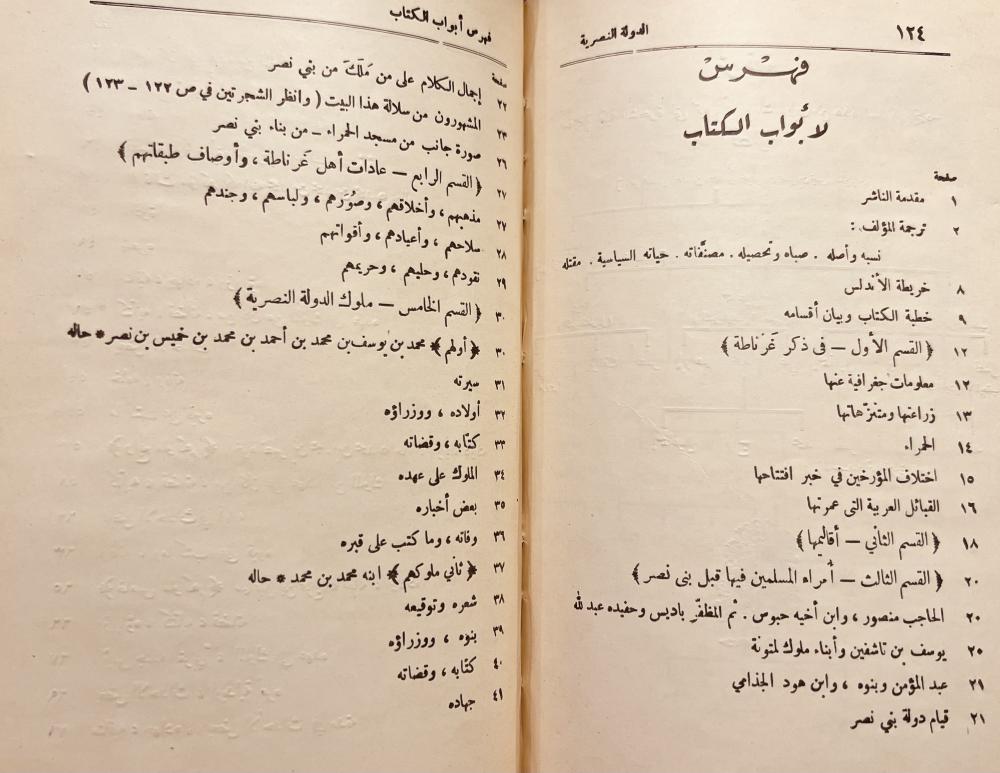 ١٢٤ الدولة النصرية
فهرس
لأبواب الكتاب
صفحة
١ مقدمة الناشر
٢ ترجمة المؤلف :
نسبه وأصله . صباه وتحصيله . مصنّفاته . حياته السياسية . مقتله
٨ خريطة الأندلس
٩ خطبة الكتاب وبيان أقسامه
١٢ ﴿ القسم الأول — فى ذكر غَرناطة ﴾
١٢ معلومات جغرافية عنها
١٣ زراعتها ومتنزّهاتها
١٤ الحمراء
١٥ اختلاف المؤرخين في خبر افتتاحها
١٦ القبائل العربية التى عمرتها
١٨ ﴿ القسم الثاني — أقاليمها ﴾
٢٠ ﴿ القسم الثالث — أمراء المسلمين فيها قبل بنى نصر ﴾
٢٠ الحاجب منصور ، وابن أخيه حبوس . ثم المظفّر باديس وحفيده عبد لله
٢٥ يوسف بن تاشفين وأبناء ملوك لمتونة
٢١ عبد المؤمن وبنوه ، وابن هود الجذامي
٢١ قيام دولة بني نصر
فهرس أبواب الكتاب
صفحة
٢٢ إجمال الكلام على من مَلَكَ من بني نصر
٢٣ المشهورون من سلالة هذا البيت ( وانظر الشجرتين في ص ١٢٢ – ١٢٣ )
٢٦ صورة جانب من مسجد الحمراء – من بناء بني نصر
٢٧ ﴿ القسم الرابع — عادات أهل غَرناطة ، وأوصاف طبقاتهم ﴾
٢٧ مذهبهم ، وأخلاقهم ، وصُوَرهم ، ولباسهم ، وجندهم
٢٨ سلاحهم ، وأعيادهم ، وأقواتهم
٢٩ نقودهم ، وحليهم ، وحريمهم
٣٠ ﴿ القسم الخامس — ملوك الدولة النصرية ﴾
٣٠ ﴿ أولهم ﴾ محمد بن يوسف بن محمد بن أحمد بن محمد بن خميس بن نصر * حاله
٣١ سيرته
٣٢ أولاده ، ووزراؤه
٣٣ كتّابه ، وقضاته
٣٤ الملوك على عهده
٣٥ بعض أخباره
٣٦ وفاته ، وما كتب على قبره
٣٧ ﴿ ثاني ملوكهم ﴾ ابنه محمد بن محمد * حاله
٣٨ شعره وتوقيعه
٣٩ بنوه ، ووزراؤه
٤٠ كتّابه ، وقضاته
٤١ جهاده